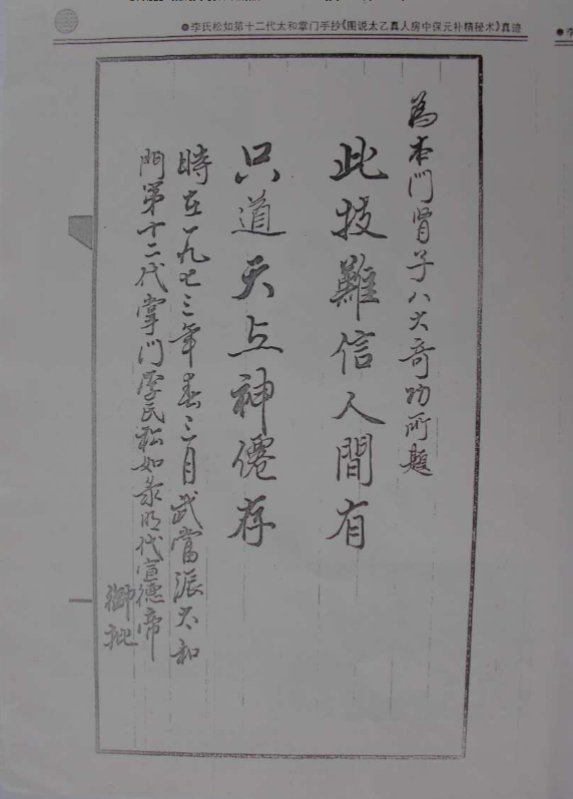 ●李氏松如第十二代太和掌门手抄《图说太乙真人房中保元补精秘术》真迹
為本門胃子八大奇功所題
此技難信人間有
只道天上神僊存
時在一九七三年春三月武當派太和
門第十二代掌门李氏松如录明代宣德帝
御批